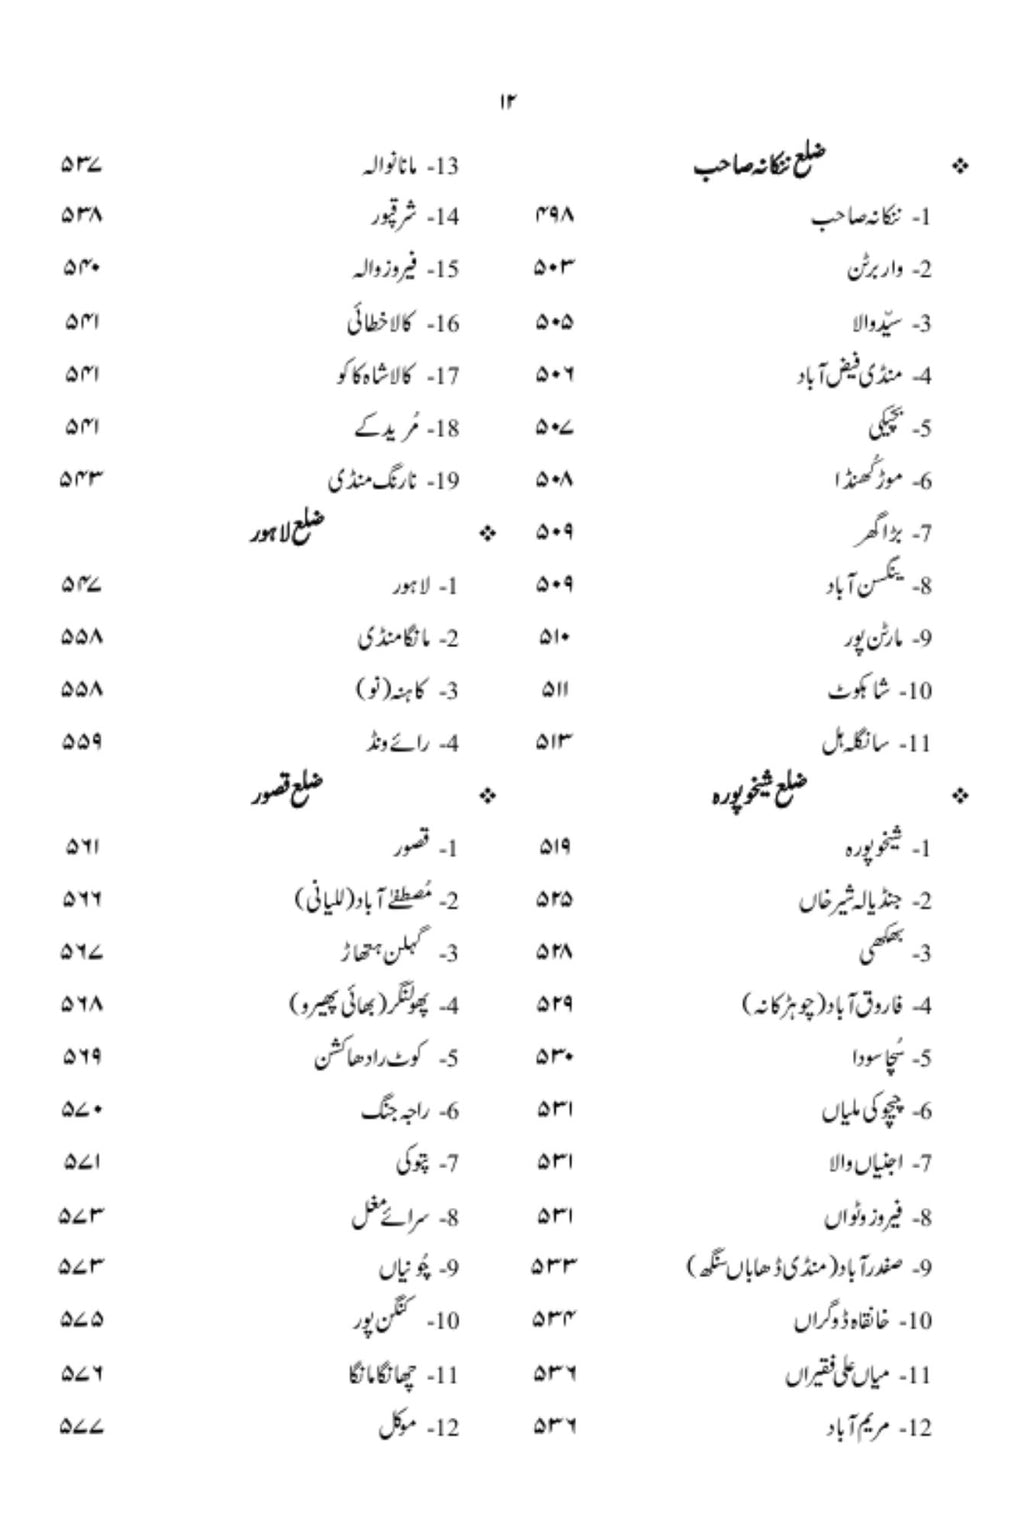 ۱۲
❖ ضلع ننکانہ صاحب
1- ننکانہ صاحب ۴۹۸
2- واربرٹن ۵۰۳
3- سیّد والا ۵۰۵
4- منڈی فیض آباد ۵۰۶
5- بچیکی ۵۰۷
6- موڑ کُھنڈا ۵۰۸
7- بڑا گھر ۵۰۹
8- ینگسن آباد ۵۰۹
9- مارٹن پور ۵۱۰
10- شاہکوٹ ۵۱۱
11- سانگلہ ہل ۵۱۳
❖ ضلع شیخوپورہ
1- شیخوپورہ ۵۱۹
2- جنڈیالہ شیر خاں ۵۲۵
3- بھکھی ۵۲۸
4- فاروق آباد (چوہڑکانہ) ۵۲۹
5- سُچا سودا ۵۳۰
6- چیچو کی ملیاں ۵۳۱
7- اجنیاں والا ۵۳۱
8- فیروز وٹواں ۵۳۱
9- صفدر آباد (منڈی ڈھاباں سنگھ) ۵۳۳
10- خانقاہ ڈوگراں ۵۳۴
11- میاں علی فقیراں ۵۳۶
12- مریم آباد ۵۳۶
13- مانانوالہ ۵۳۷
14- شرقپور ۵۳۸
15- فیروز والہ ۵۴۰
16- کالا خطائی ۵۴۱
17- کالا شاہ کاکو ۵۴۱
18- مُرید کے ۵۴۱
19- نارنگ منڈی ۵۴۳
❖ ضلع لاہور
1- لاہور ۵۴۷
2- مانگا منڈی ۵۵۸
3- کاہنہ (نو) ۵۵۸
4- رائے ونڈ ۵۵۹
❖ ضلع قصور
1- قصور ۵۶۱
2- مُصطفےٰ آباد (للیانی) ۵۶۶
3- گہلن ہتھاڑ ۵۶۷
4- پھولنگر (بھائی پھیرو) ۵۶۸
5- کوٹ رادھا کشن ۵۶۹
6- راجہ جنگ ۵۷۰
7- پتوکی ۵۷۱
8- سرائے مغل ۵۷۳
9- چُونیاں ۵۷۳
10- کنگن پور ۵۷۵
11- چھانگا مانگا ۵۷۶
12- موکل ۵۷۷